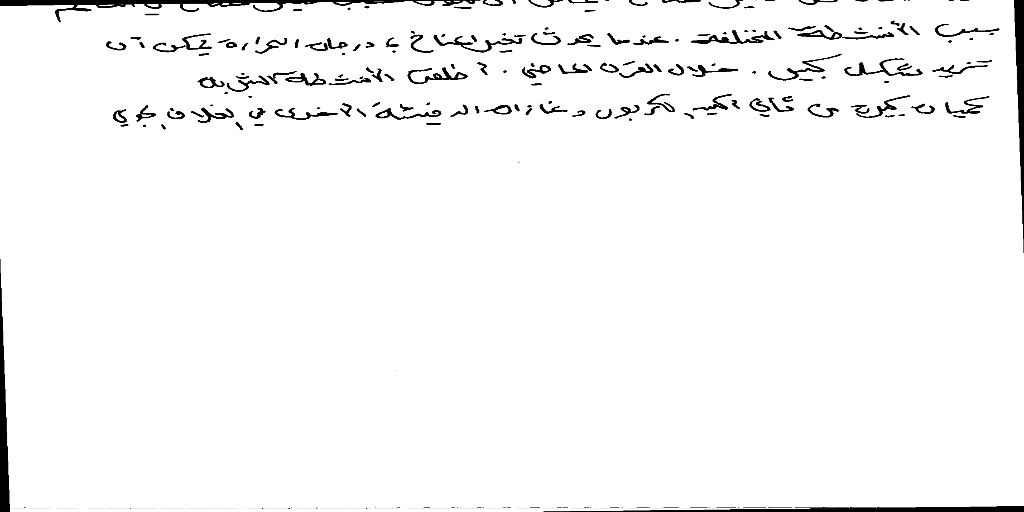 بسبب الأنشطة المختلفة. عندما يحدث تغير المناخ، درجات الحرارة يمكن أن
تزيد بشكل كبير. خلال القرن الماضي. أطلقت الأنشطة البشرية
كميات كبيرة من ثاني أكسيد الكربون وغازات الدفيئة الأخرى في الغلاف الجوي